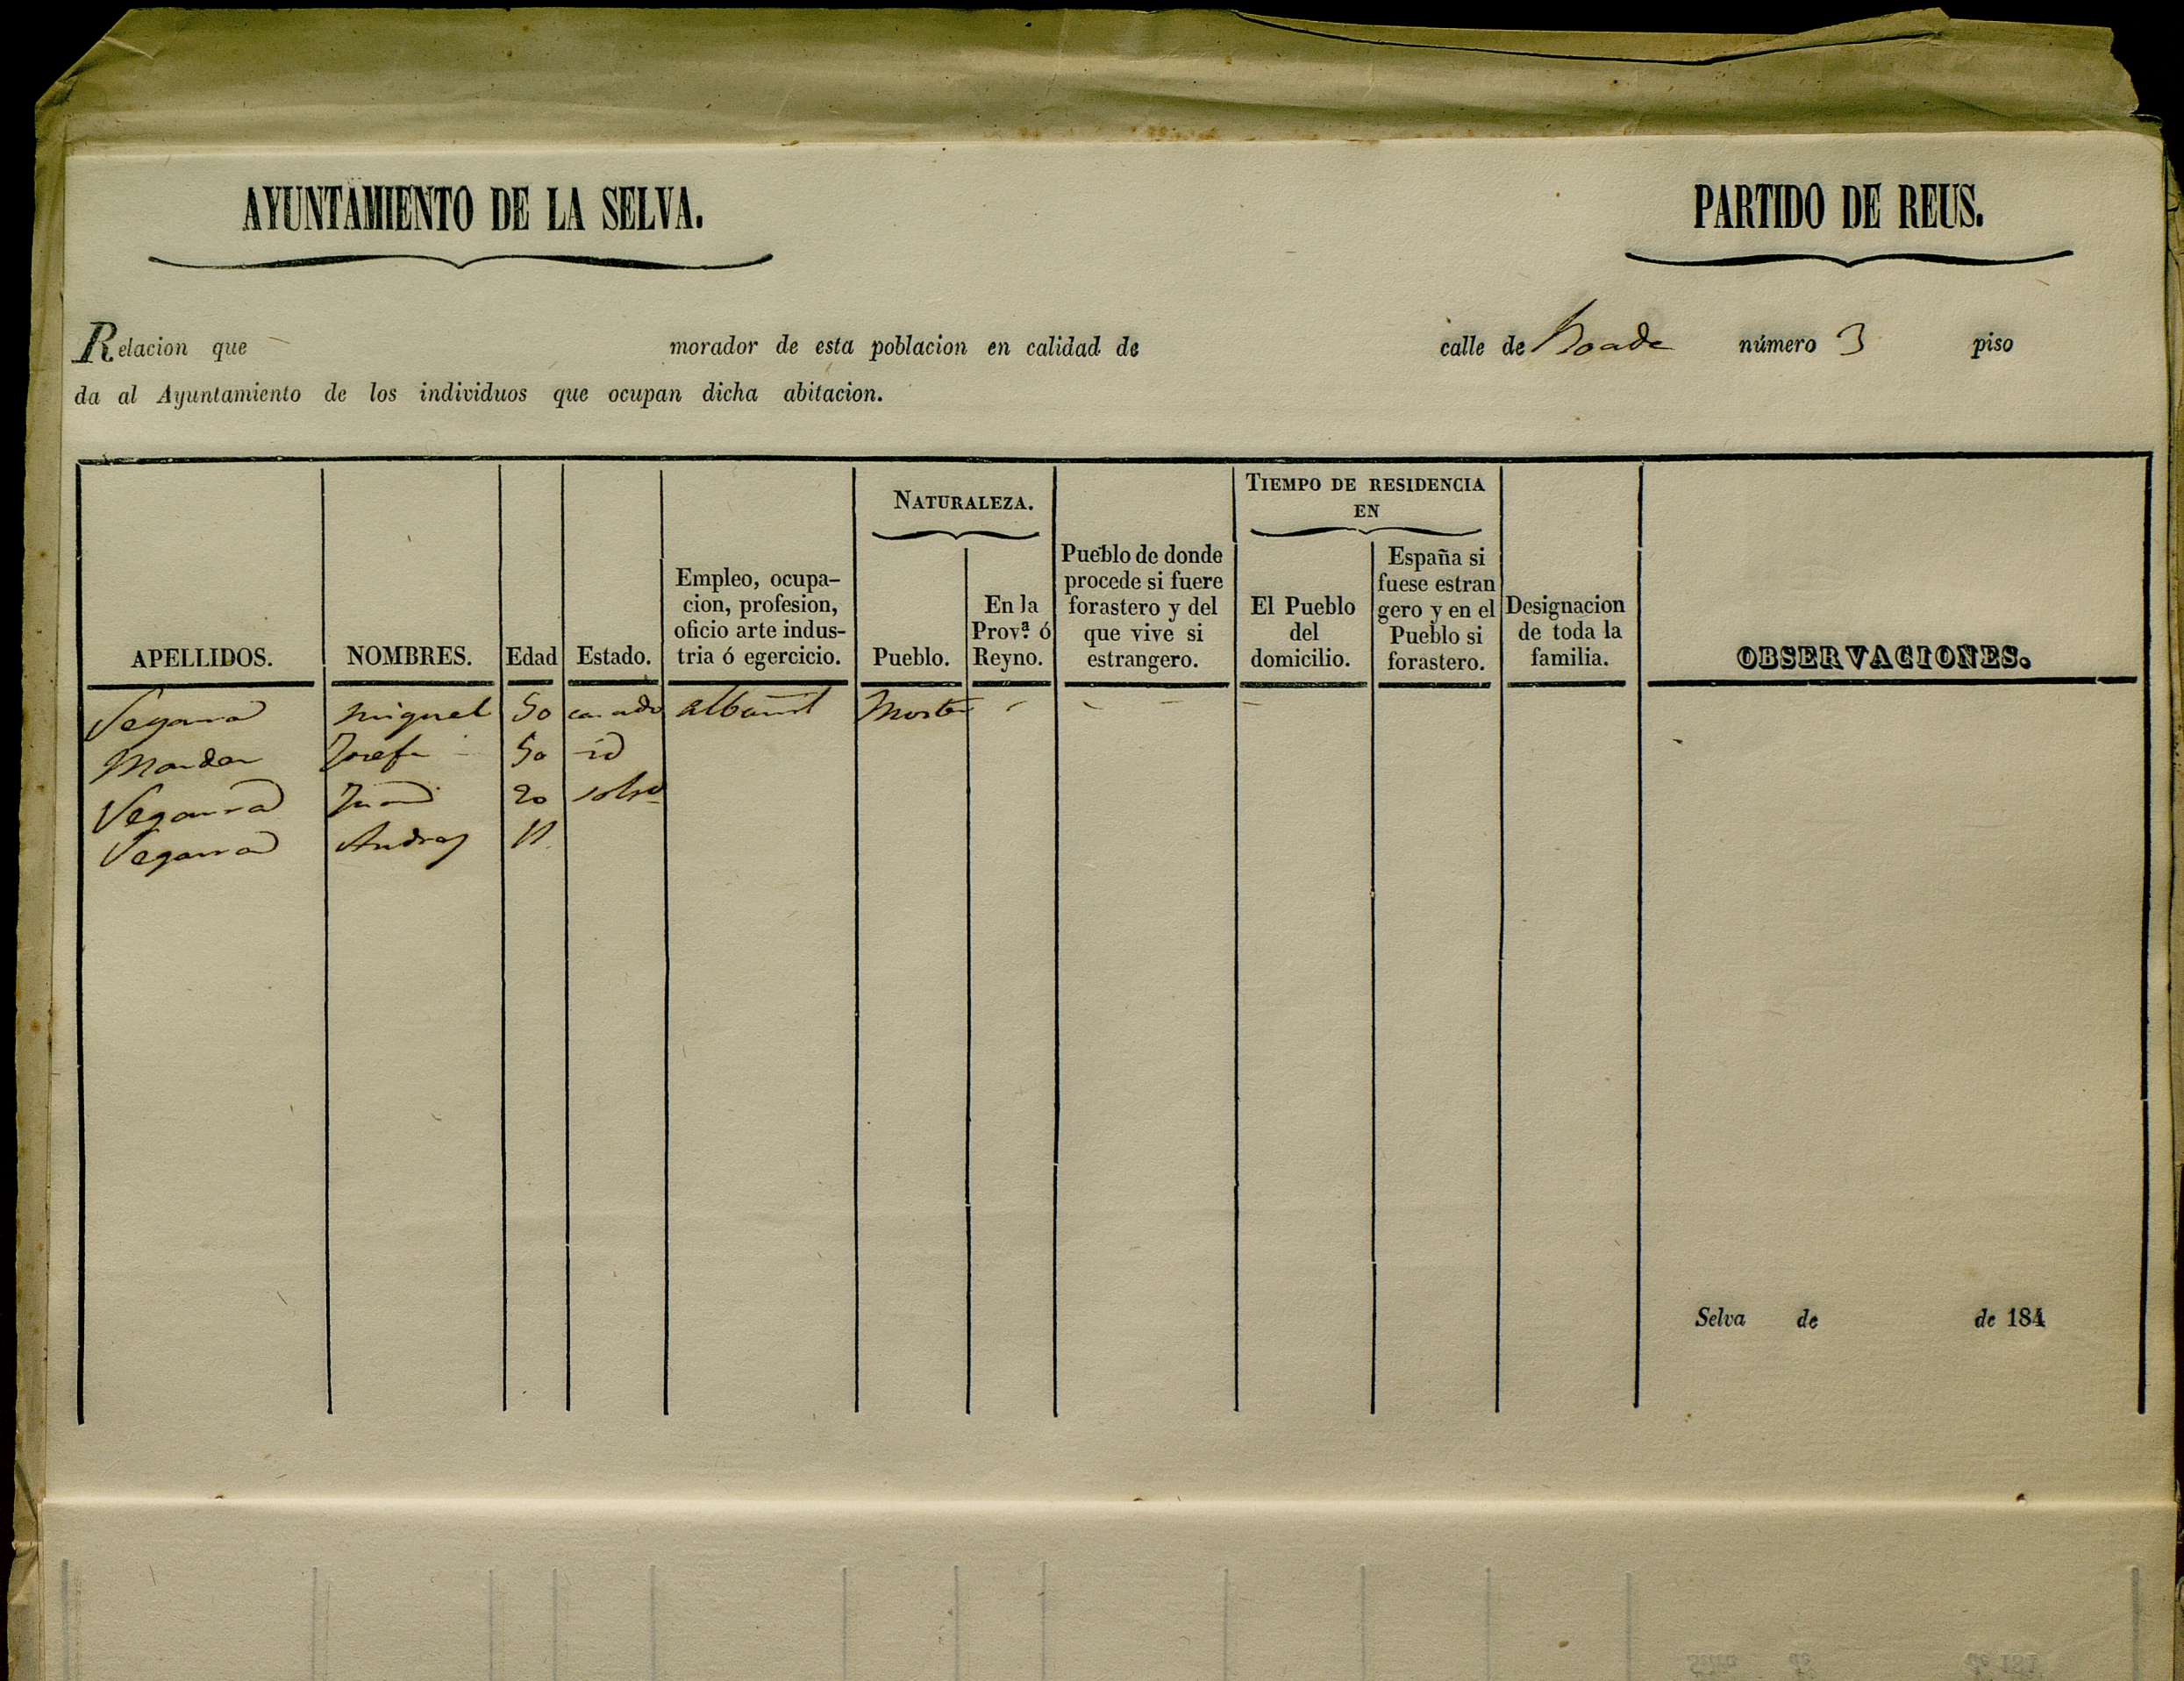 AYUNTAMIENTO DE LA SELVA.
PARTIDO DE REUS.
Relacion que morador de esta poblacion en calidad de calle de número 3 piso
da al Ayuntamiento de los individuos que ocupan dicha abitacion.
APELLIDOS.
NOMBRES.
Edad
Estado.
Empleo, ocupa-
cion, profesion,
oficio arte indus-
tria ó egercicio.
NATURALEZA.
Pueblo.
En la
Prov.ª ó
Reyno.
Pueblo de donde
procede si fuere
forastero y del
que vive si
estrangero.
TIEMPO DE RESIDENCIA
EN
El Pueblo
del
domicilio.
España si
fuese estran
gero y en el
Pueblo si
forastero.
Designacion
de toda la
familia.
OBSERVACIONES.
Segarra Miguel 50 casado albañil
Josefa 50 id
Segarra Juan 20
Segarra Andres 11
Selva de de 184